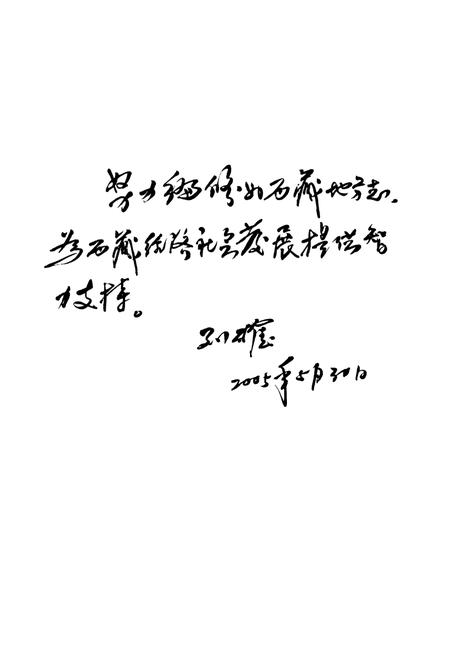 努力编修好西藏地方志，
为西藏经济社会发展提供智
力支持。
2005年5月30日